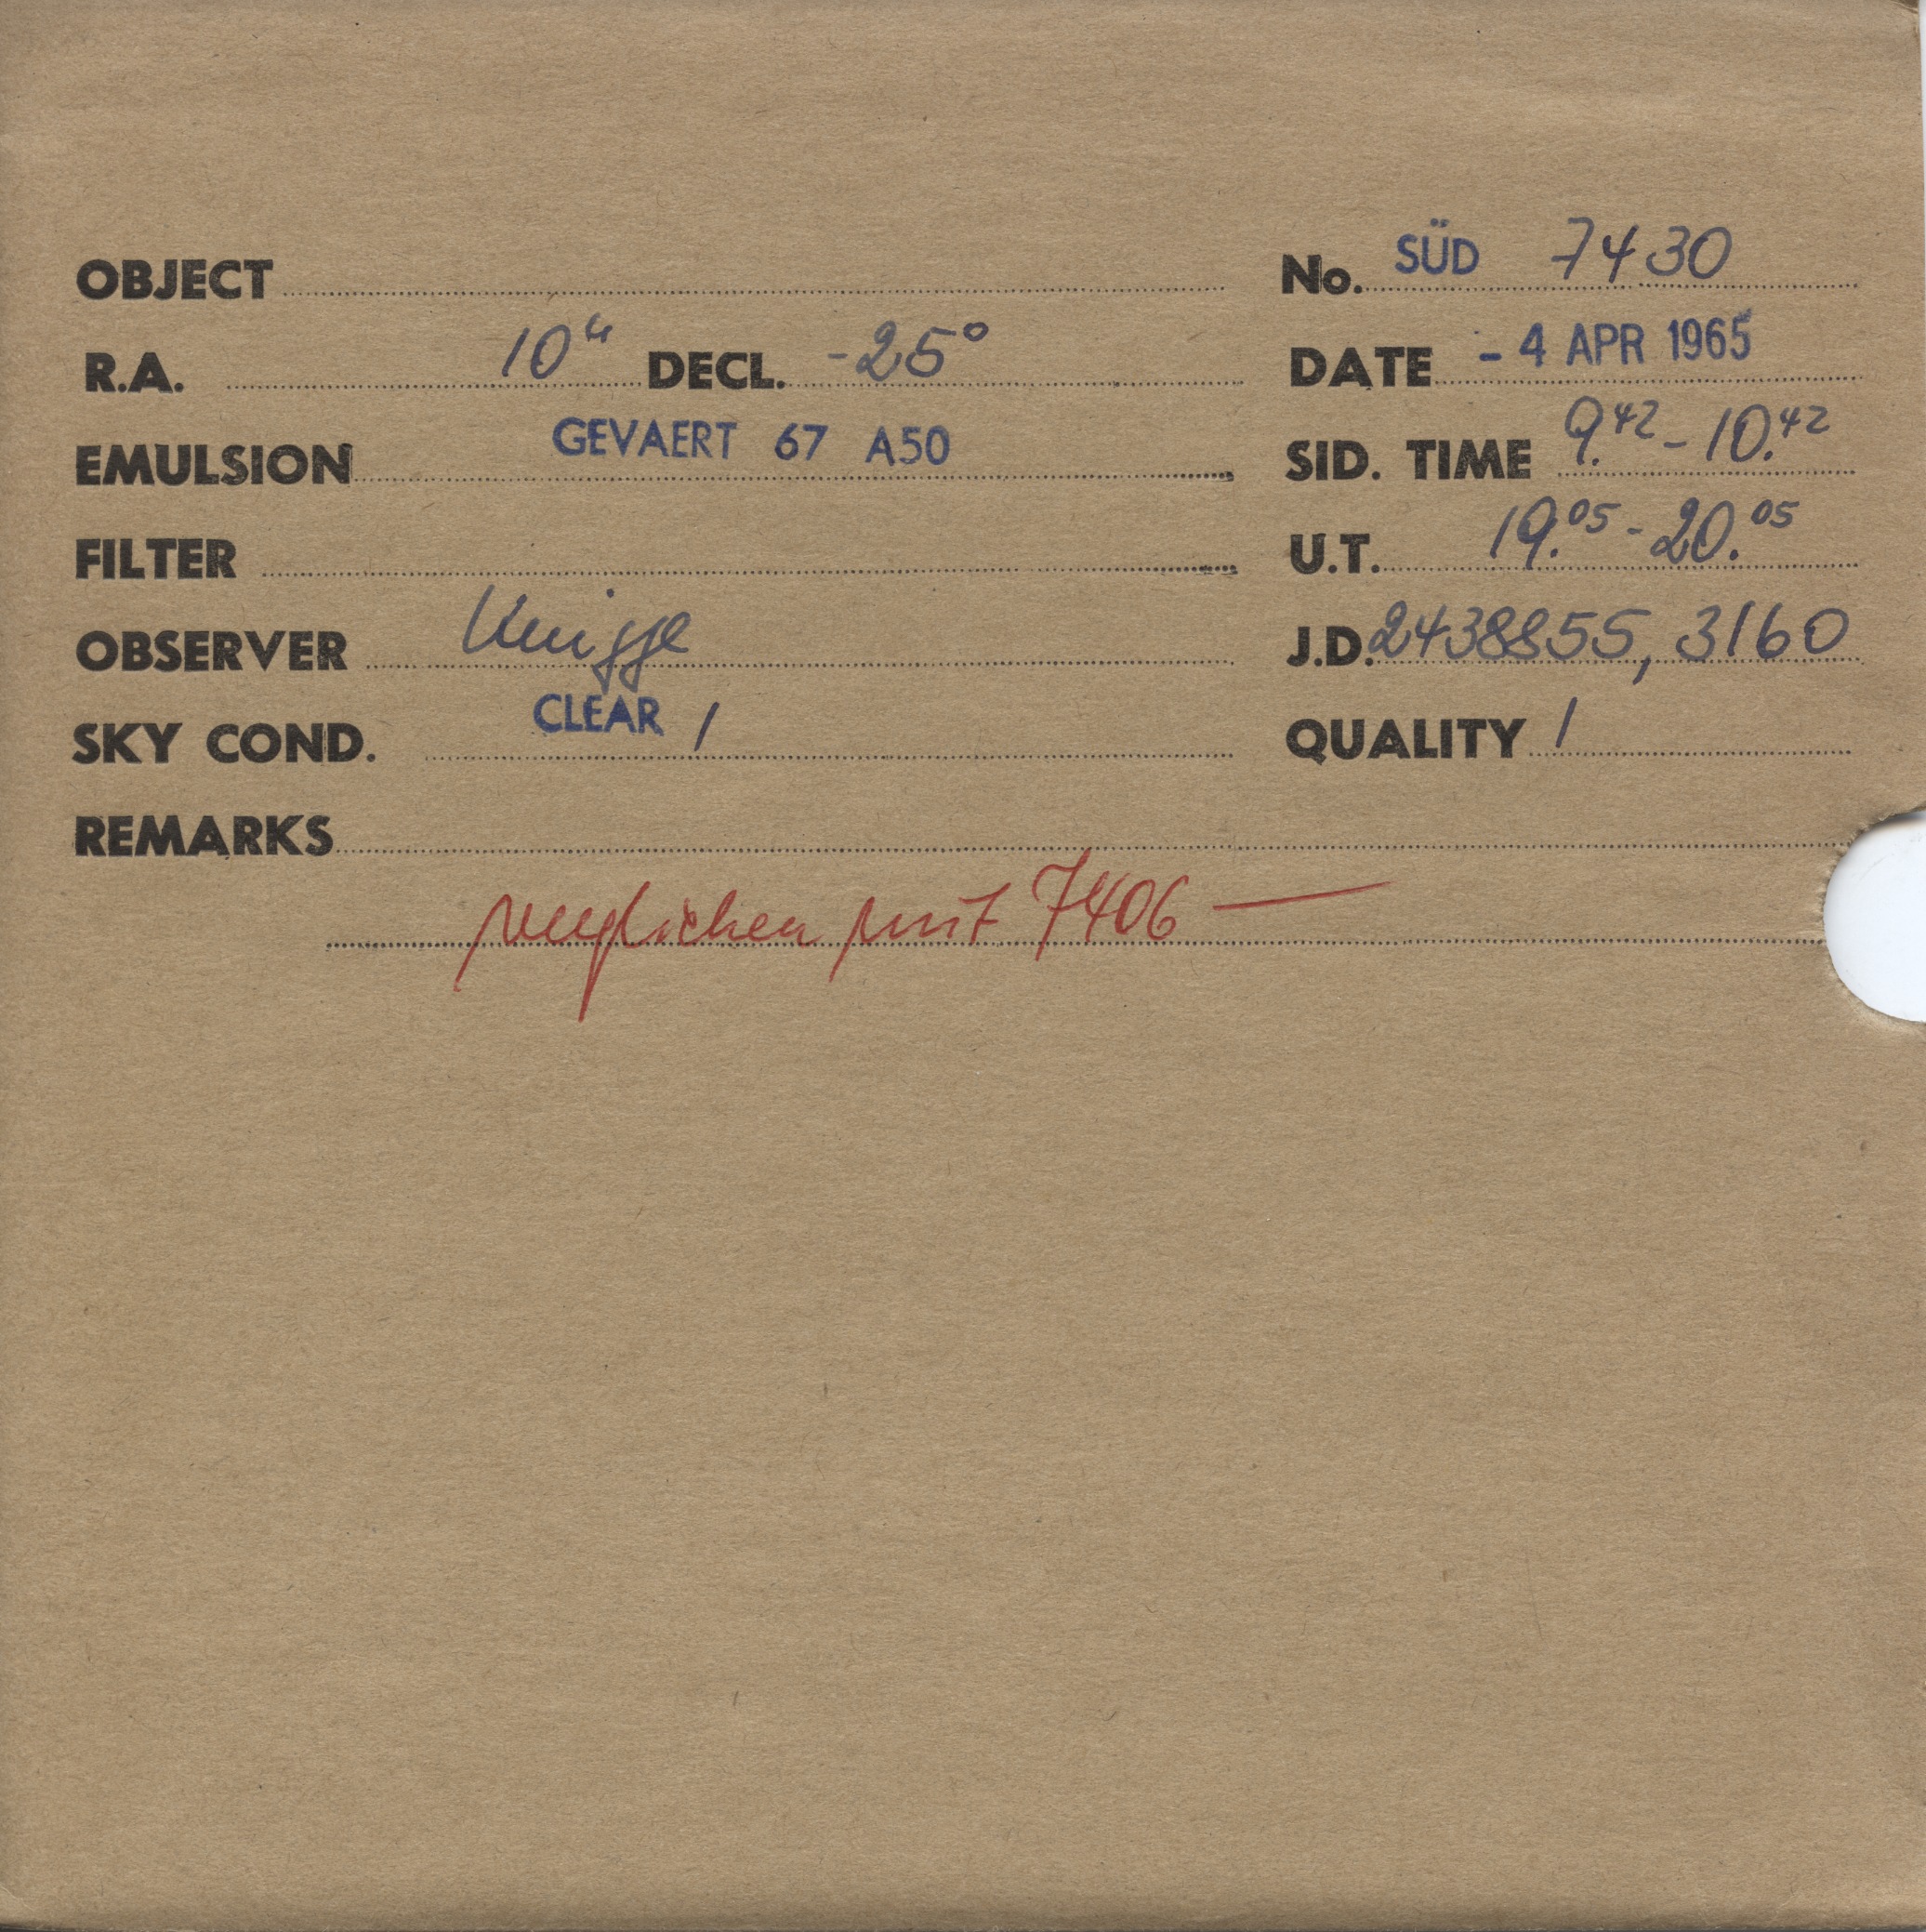 OBJECT No. SÜD 7430
R.A. 10ʰ DECL. -25° DATE - 4 APR 1965
EMULSION GEVAERT 67 A50 SID. TIME 9.42 - 10.42
FILTER U.T. 19.05 - 20.05
OBSERVER Knigge J.D. 2438855,3160
SKY COND. CLEAR 1 QUALITY 1
REMARKS
verglichen mit 7406 —